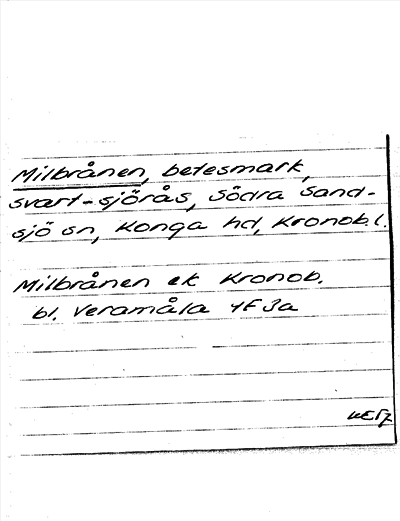 Milbrånen, betesmark,
svart-sjörås, Södra Sand-
sjö sn, Konga hd, Kronob.l.
Milbrånen ek Kronob.
bl. Veramåla 4F3a